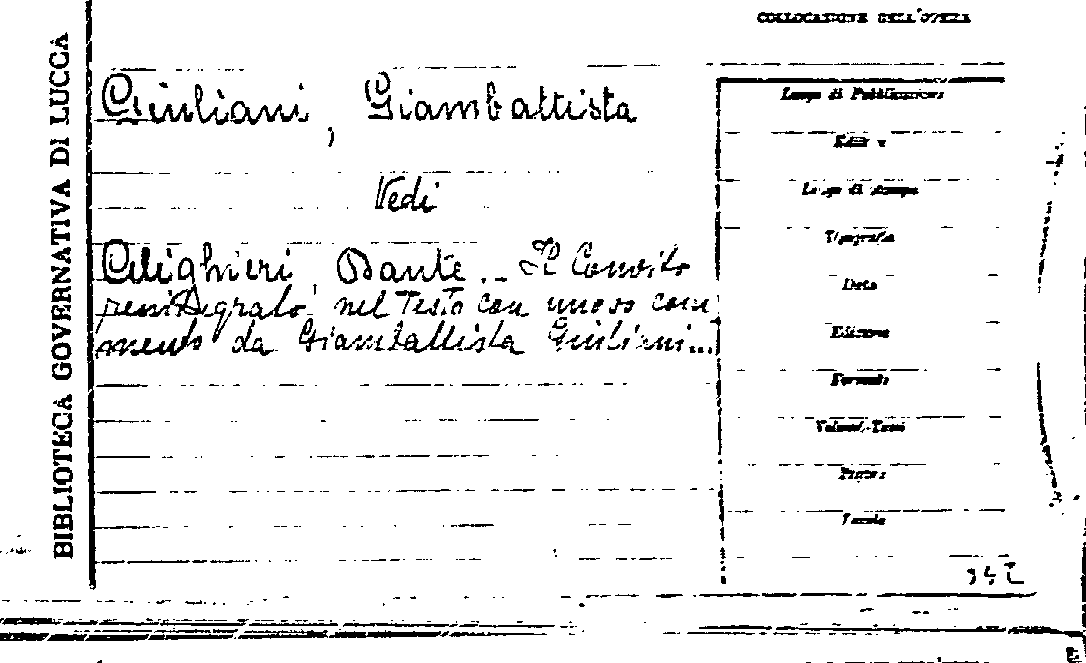 COLLOCAZIONE DELL'OPERA
BIBLIOTECA GOVERNATIVA DI LUCCA
Giuliani, Giambattista
Vedi
Alighieri, Dante.. Il Convito
reintegrato nel Testo con nuovo com
mento da Giambattista Giuliani...
Luogo di Pubblicazione
Editore
Luogo di stampa
Tipografia
Data
Edizione
Formato
Volumi-Tomi
Pagine
Tavole